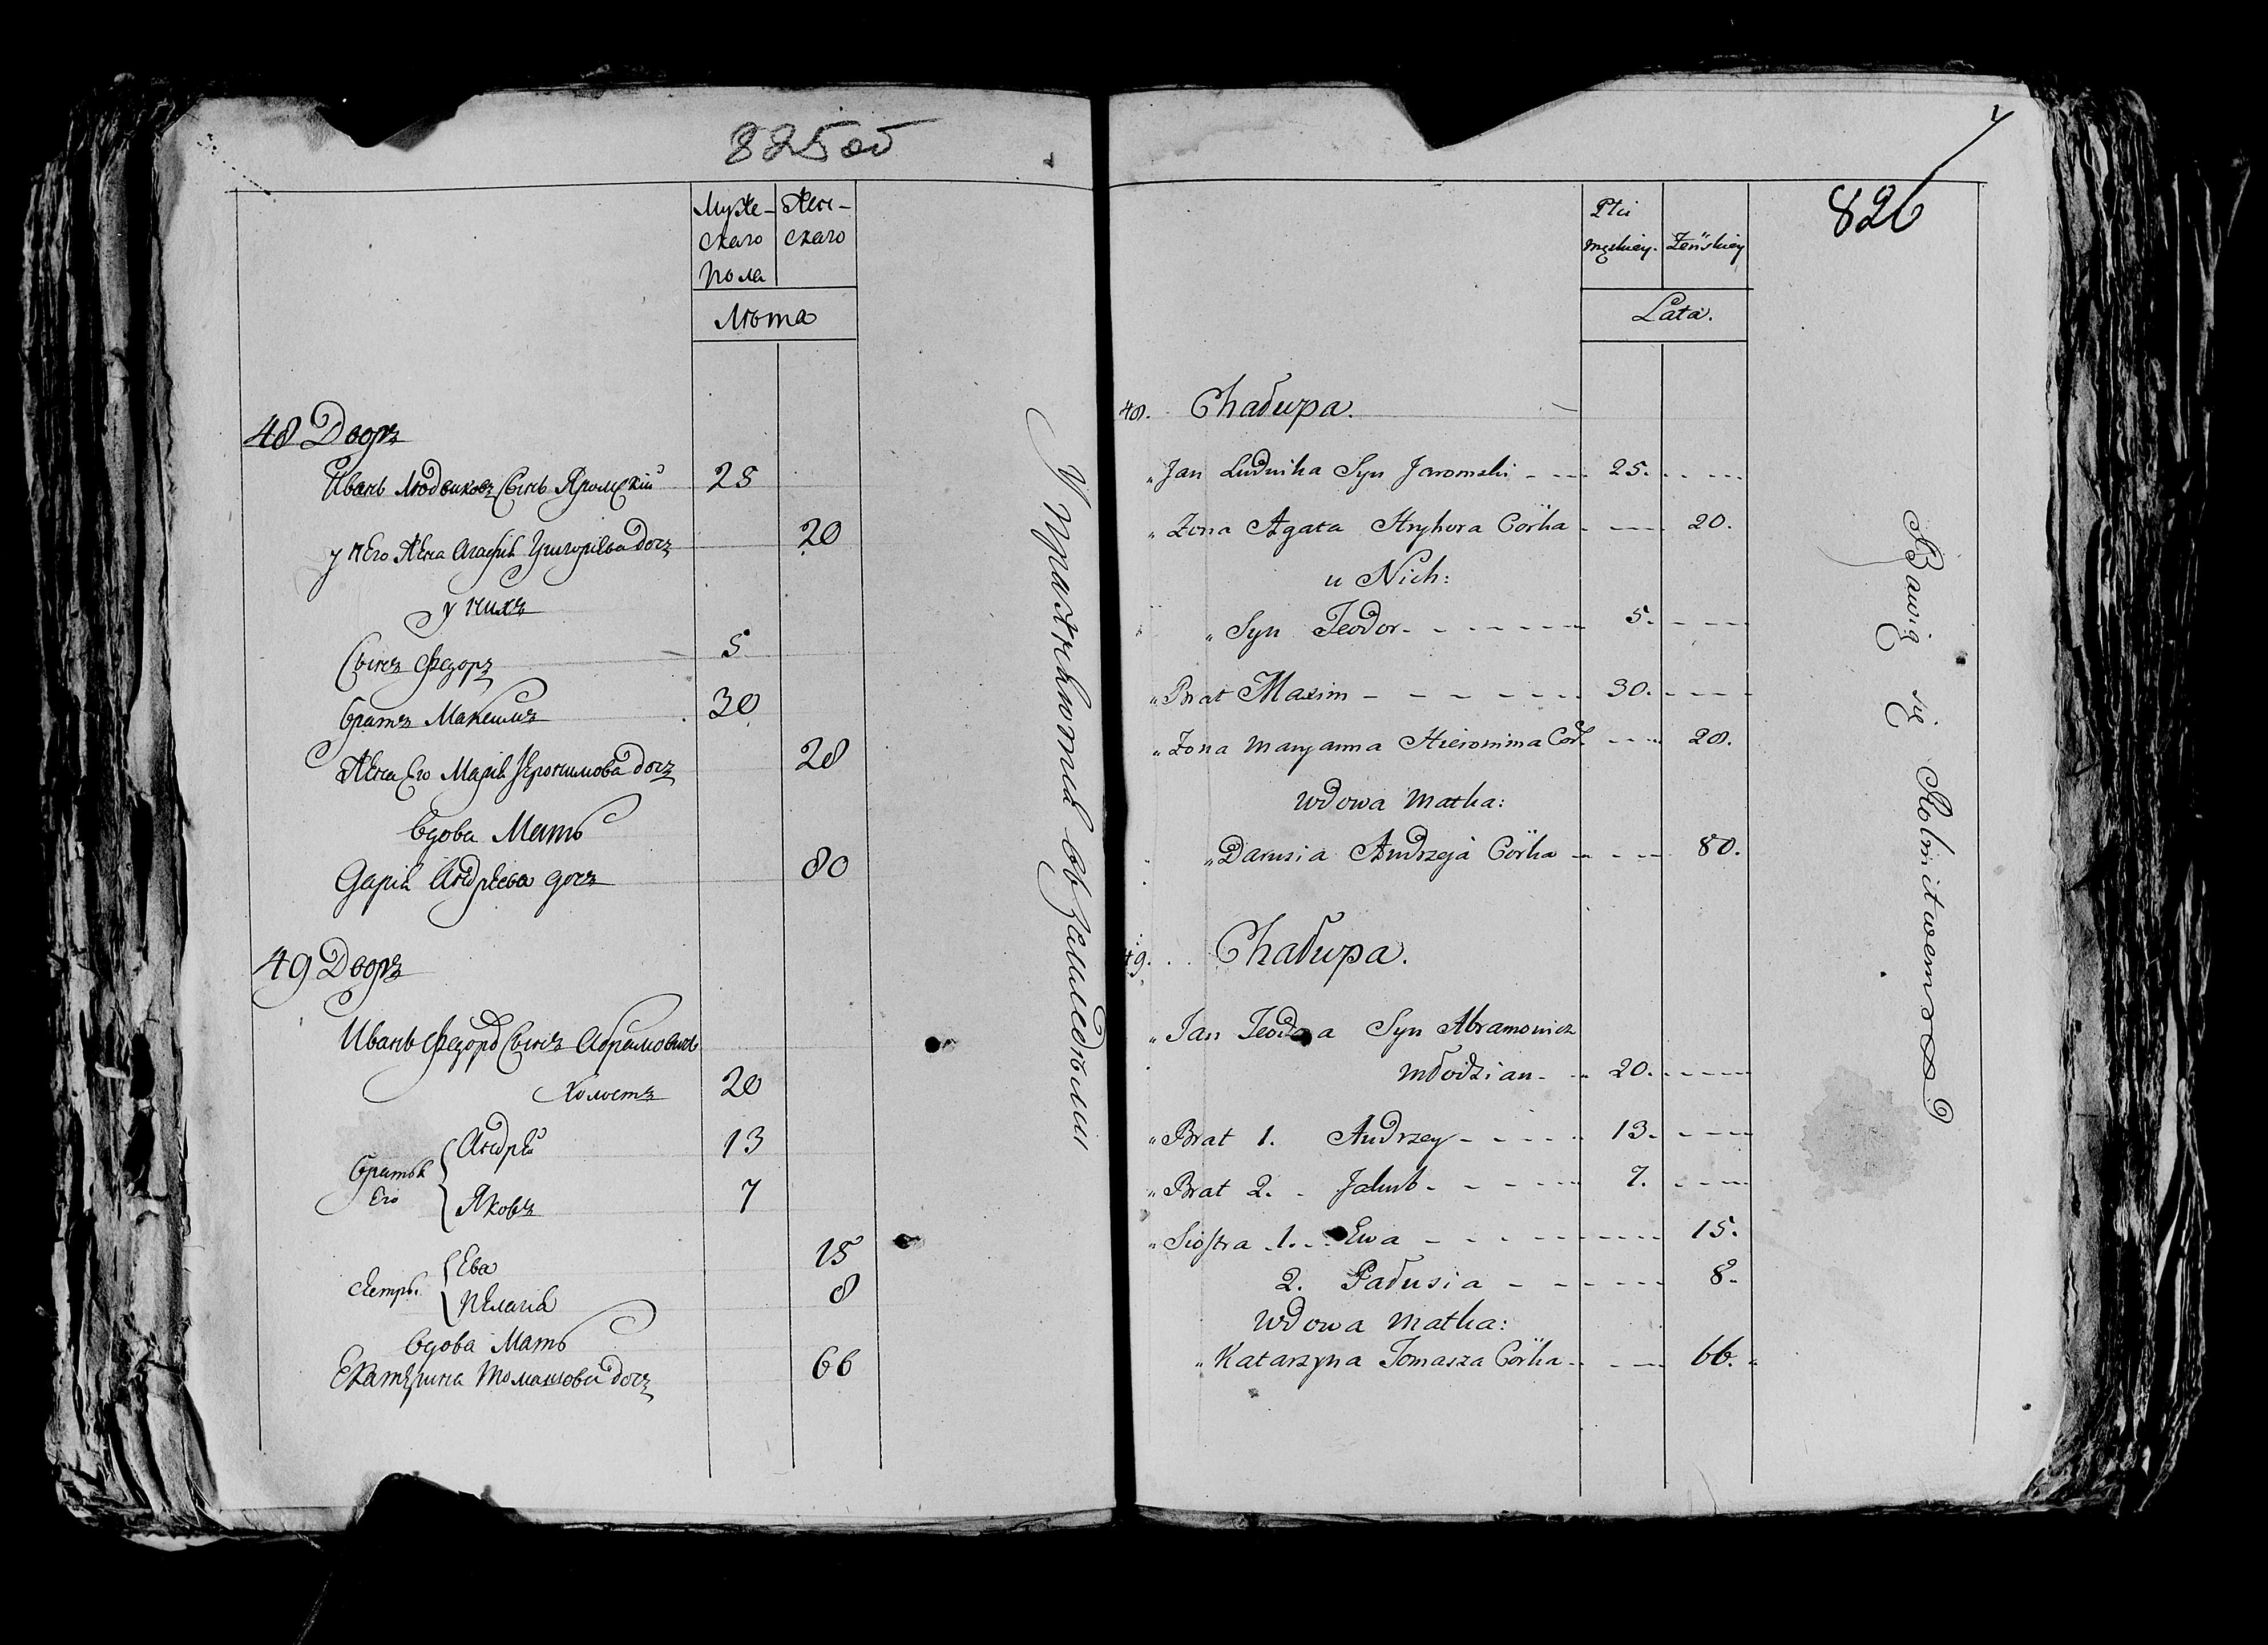 825 об
Муже- Жен-
скаго скаго
пола
Лѣта
48 Дворъ
Иванъ Людвиковъ Сынъ Яромскій 25
у него Жена Агафія Григорьева дочь 20
у нихъ
Сынъ Федоръ 5
братъ Максимъ 30
Жена Его Марія Іеронимова дочь 28
вдова Мать
Дарія Андреева дочь 80
49 Дворъ
Иванъ Федоровъ Сынъ Абрамовичь
Холостъ 20
братья Его { Андрей 13
Яковъ 7
сестры { Ева 15
Пелагія 8
вдова Мать
Екатерина Томашова дочь 66
Упражняются въ Земледѣліи
826
Płci
męskiey. Żeńskiey
Lata.
48. Chałupa.
„ Jan Ludwika Syn Jaromski 25.
„ Żona Agata Hryhora Córka 20.
u Nich:
„ Syn Teodor 5.
„ Brat Maxim 30.
„ Żona Maryanna Hieronima Cór. 28.
Wdowa Matka:
„ Darusia Andrzeja Córka 80.
49. Chałupa.
„ Jan Teodora Syn Abramowicz
młodzian 20.
„ Brat 1. Andrzey 13.
„ Brat 2. Jakub 7.
„ Siostra 1. Ewa 15.
2. Pałusia 8.
Wdowa Matka:
„ Katarzyna Tomasza Córka 66.
Bawią się Rolnictwem